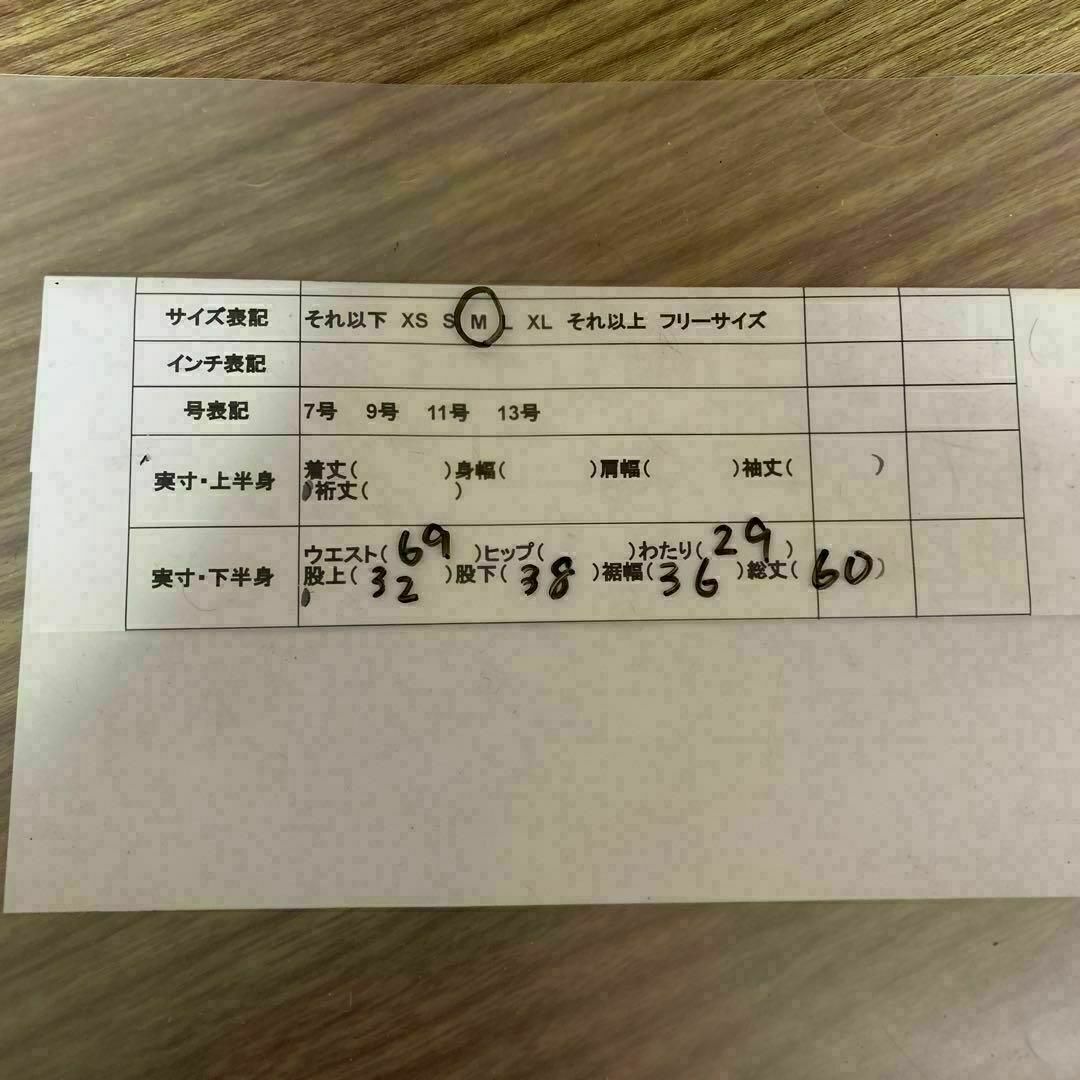 サイズ表記 それ以下 XS S M L XL それ以上 フリーサイズ
インチ表記
号表記 7号 9号 11号 13号
実寸・上半身
着丈( )身幅( )肩幅( )袖丈( )
裄丈( )
実寸・下半身
ウエスト( 69 )ヒップ( )わたり( 29 )
股上( 32 )股下( 38 )裾幅( 36 )総丈( 60 )